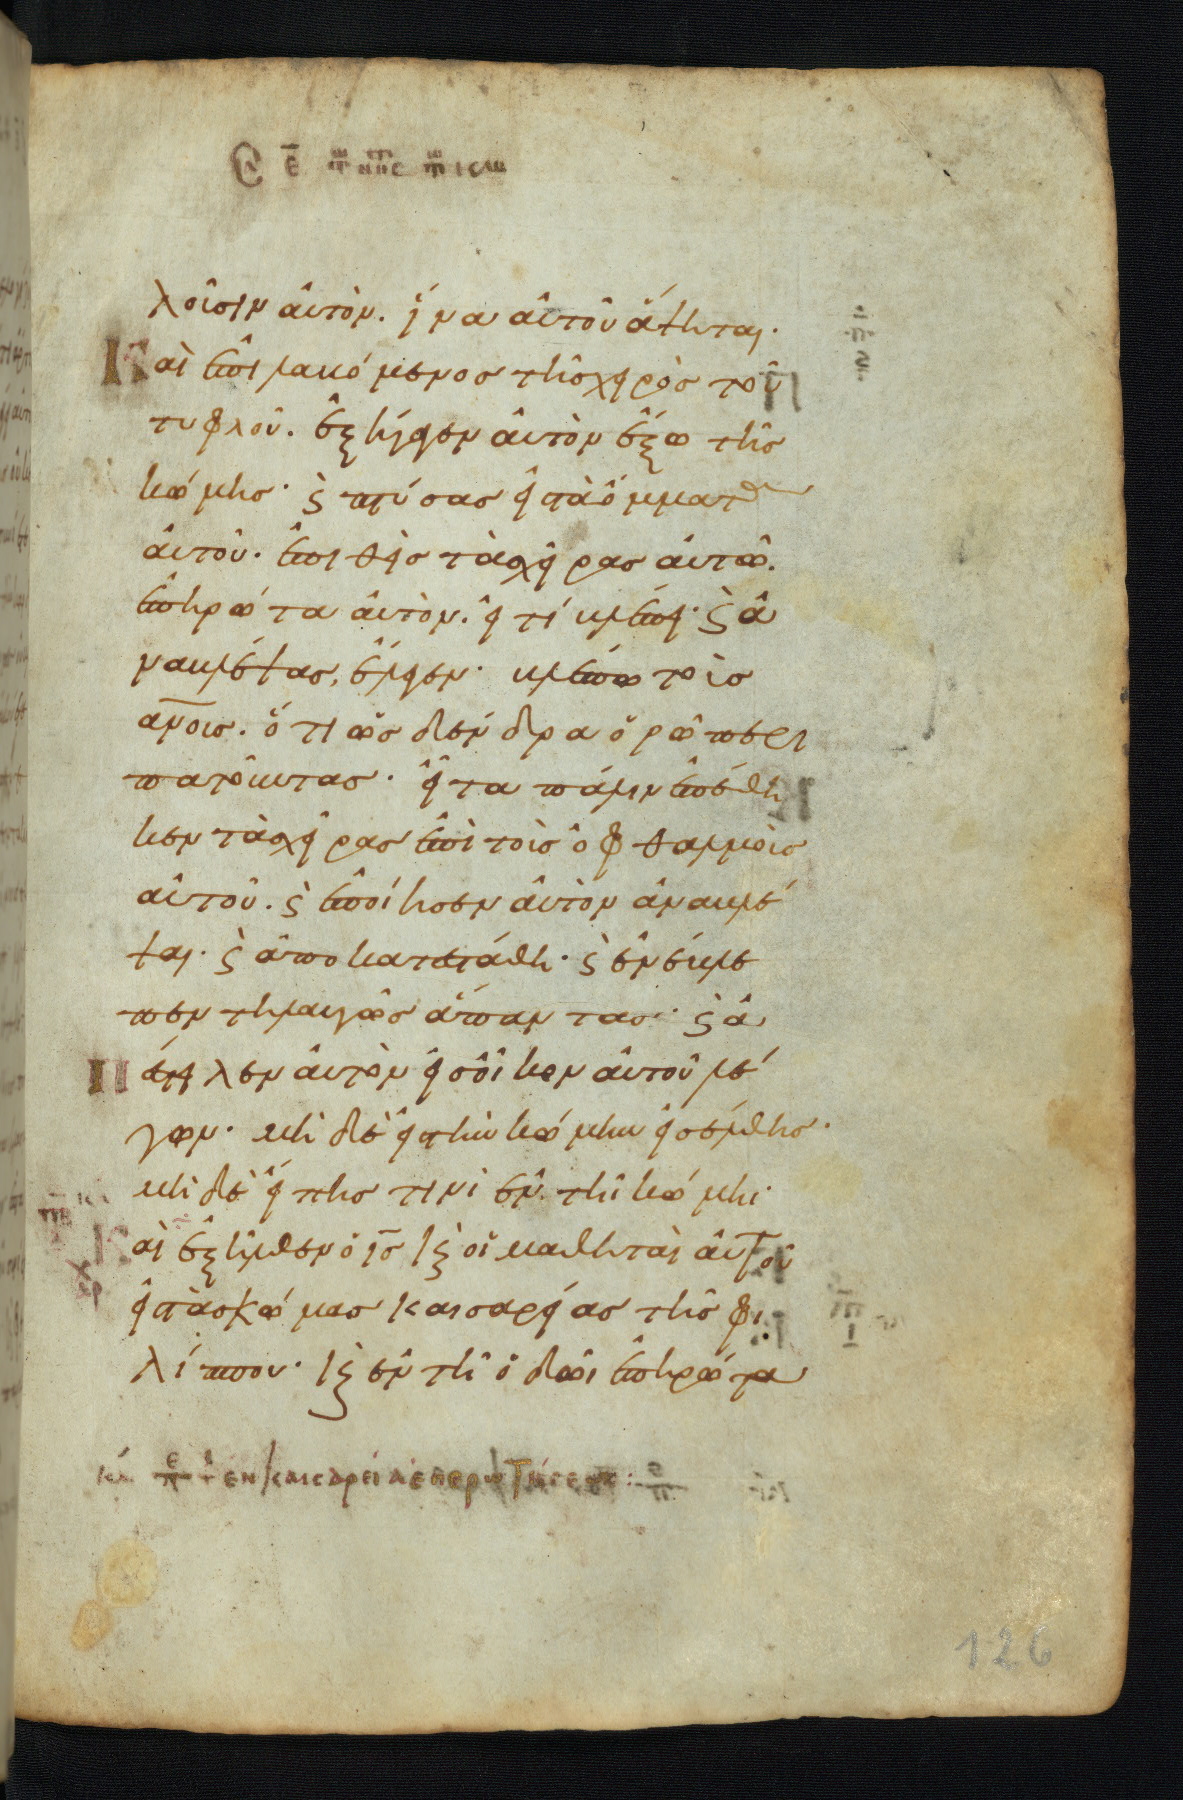 λοῦσιν αὐτὸν. ἵνα αὐτοῦ ἅψηται.
Καὶ ἐπιλαβόμενος τῆς χειρὸς τοῦ
τυφλοῦ. ἐξήγαγεν αὐτὸν ἔξω τῆς
κώμης· ϛ πτύσας εἰς τὰ ὄμματα
αὐτοῦ. ἐπιθεὶς τὰς χεῖρας αὐτῶ.
ἐπηρώτα αὐτὸν. εἴ τι βλέπει· ϛ ἀ
ναβλέψας, ἔλεγεν· βλέπω τοὺς
ἀνο̅υς. ὅτι ὡς δένδρα ὁρῶ περι
πατοῦντας· εἶτα πάλιν ἐπέθη
κεν τὰς χεῖρας ἐπὶ τοὺς ὀφθαλμοὺς
αὐτοῦ. ϛ ἐποίησεν αὐτὸν ἀναβλέ
ψαι. ϛ ἀποκατεστάθη· ϛ ἐνέβλε
πεν τηλαυγῶς ἅπαντας· ϛ ἀ
πέστειλεν αὐτὸν εἰς οἶκον αὐτοῦ λέ
γων· μὴ δὲ εἰς τὴν κώμην εἰσέλθης·
μὴ δὲ εἴπης τινὶ ἐν τῆ κώμη·
Καὶ ἐξῆλθεν ὁ ις̅ κϛ οἱ μαθηταὶ αὐτοῦ
εἰς τὰς κώμας καισαρείας τῆς φι
λίππου· κϛ ἐν τῆ ὁδῶ ἐπηρώτα
126